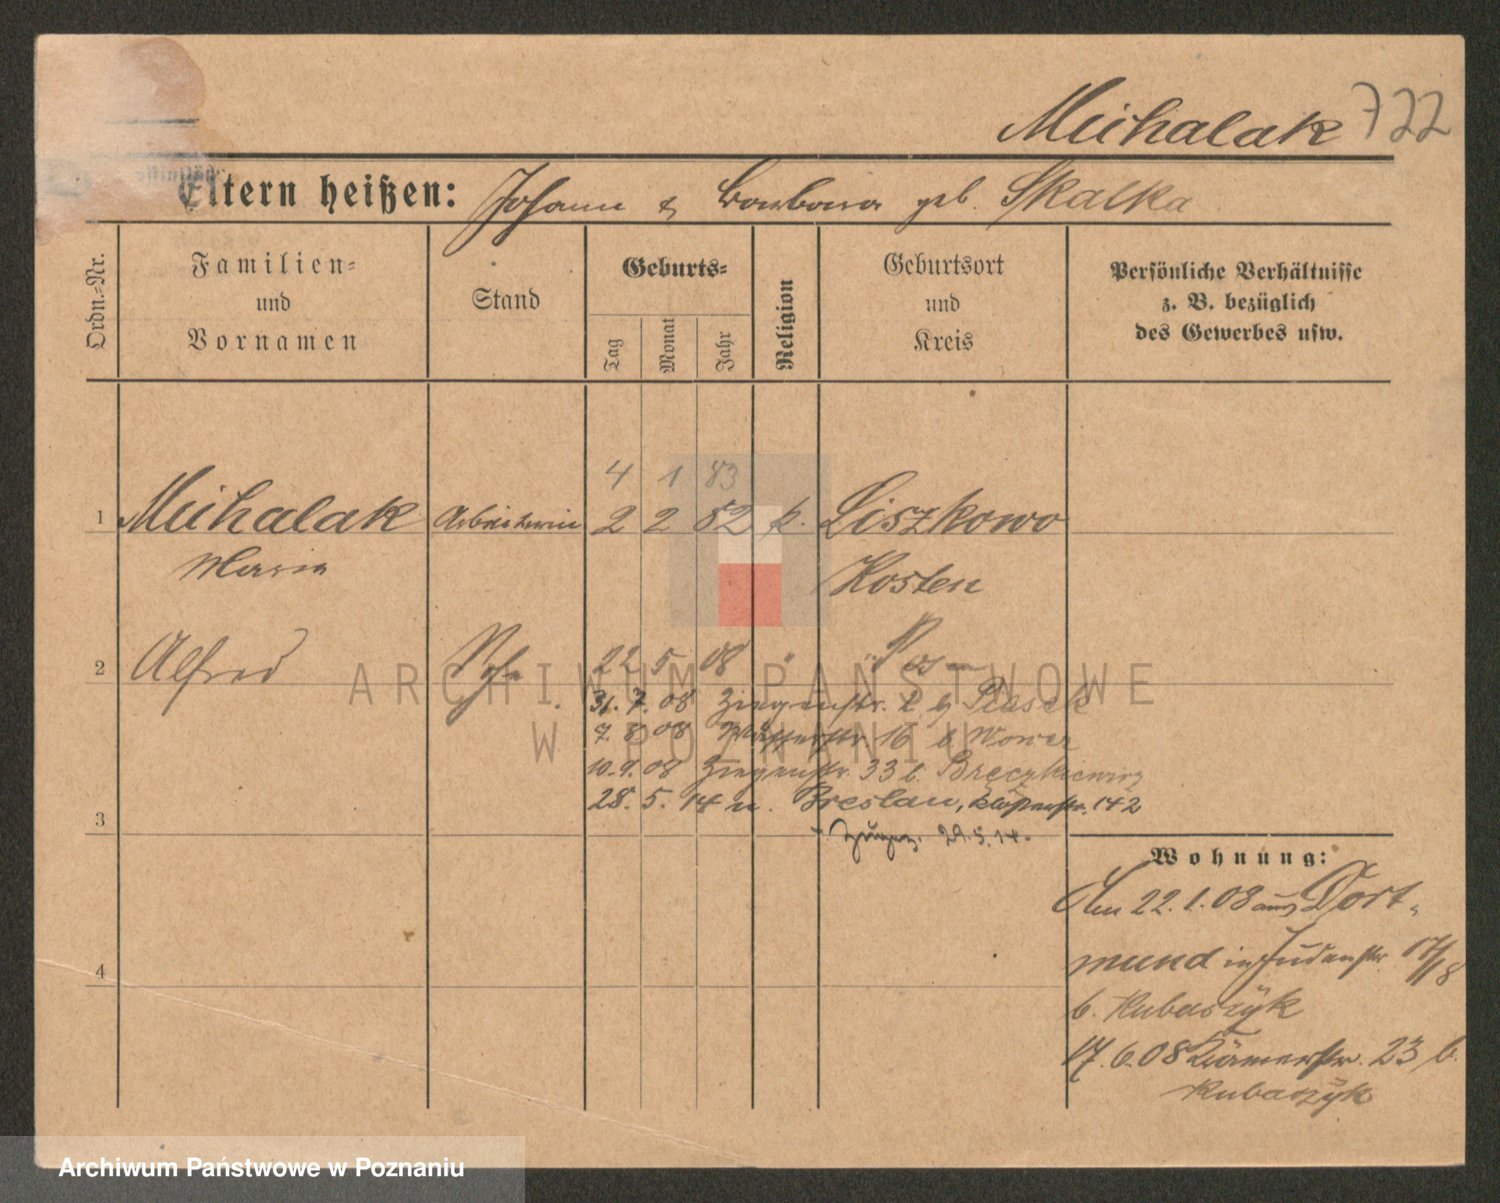 Michalak 722
Eltern heißen: Johann & Barbara geb. Skalka
Ordn.-Nr.
Familien=
und
Vornamen
Stand
Geburts=
Tag
Monat
Jahr
Religion
Geburtsort
und
Kreis
Persönliche Verhältnisse
z. B. bezüglich
des Gewerbes usw.
4 1 83
1 Michalak Arbeiterin 2 2 82 k. Liszkowo
Maria Kosten
2 Alfred 22 5 08 " Posen
31. 7. 08 Ziegenstr. b Piasek
7. 8 08 Wasserstr. 16 b
10. 9. 08 Ziegenstr. 33 b. Bręczkiewicz
28. 5. 14 n. Breslau, 142
3
29. 5. 14.
Wohnung:
Am 22. 1. 08 aus Dort-
mund in Judenstr. 17/18
b. Kubaszyk
17. 6. 08 Krämerstr. 23 b.
Kubaszyk
4
ARCHIWUM PAŃSTWOWE
W POZNANIU
Archiwum Państwowe w Poznaniu